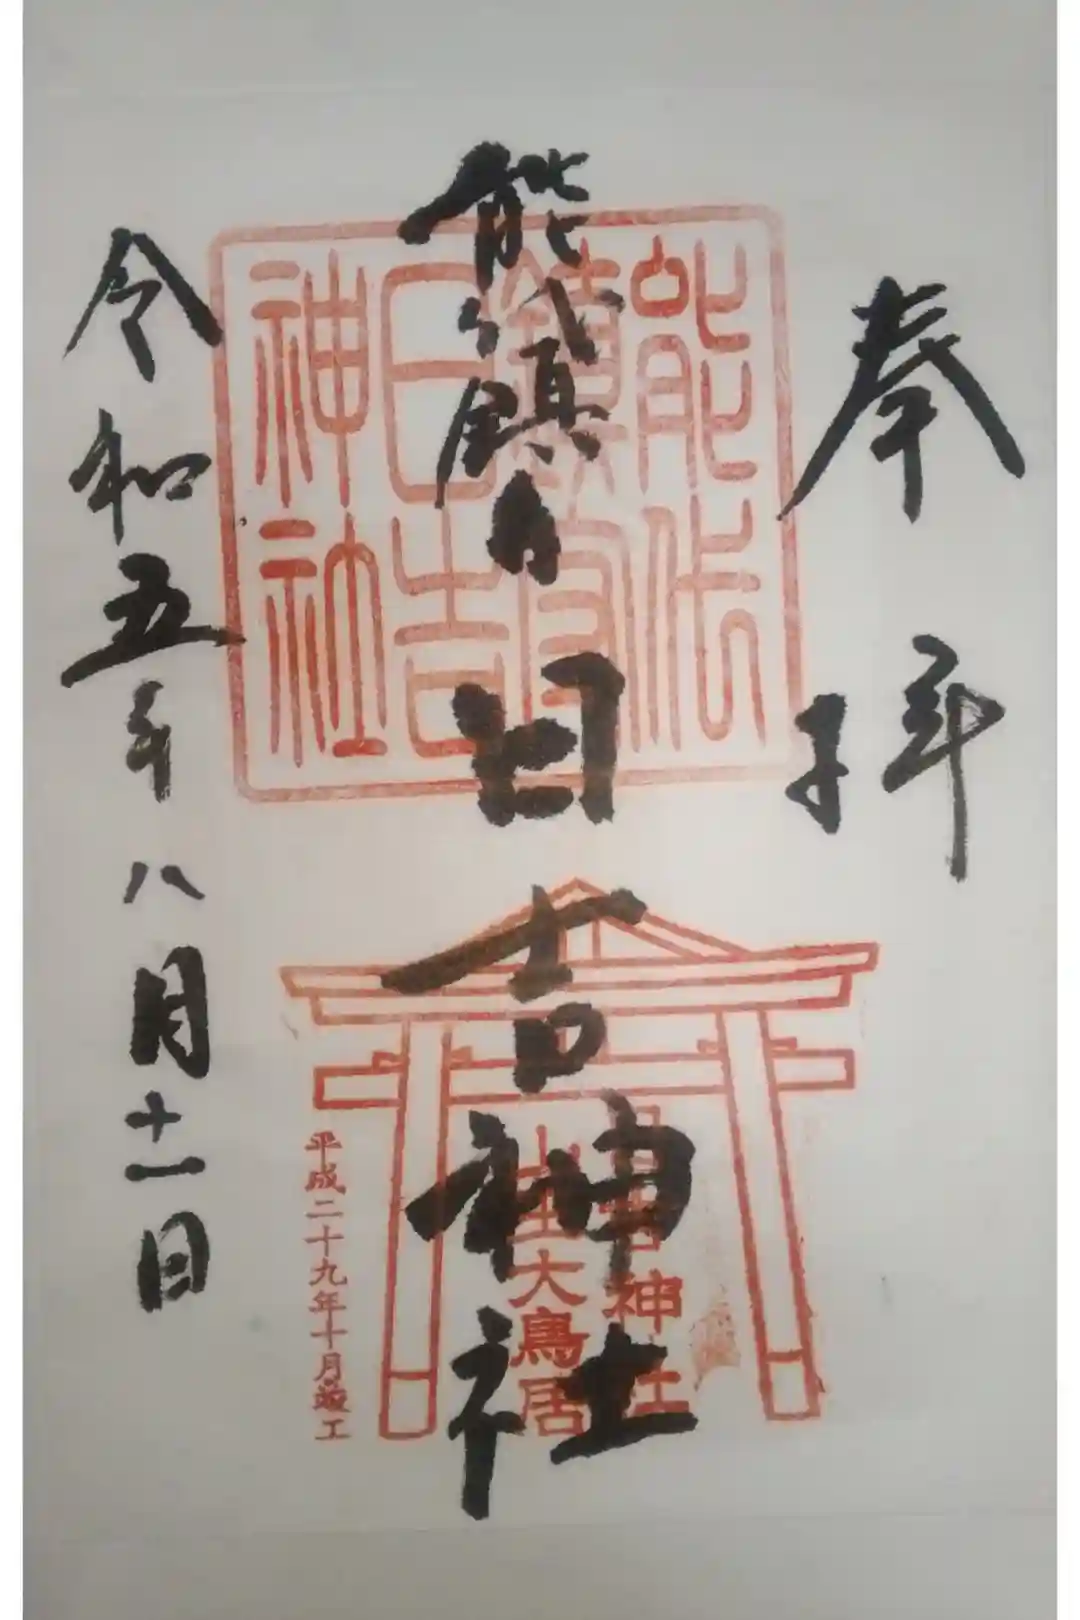 奉拝
能代鎮守日吉神社
令和五年八月十一日
能代
鎮守
日吉
神社
日吉神社
山王大鳥居
平成二十九年十月竣工